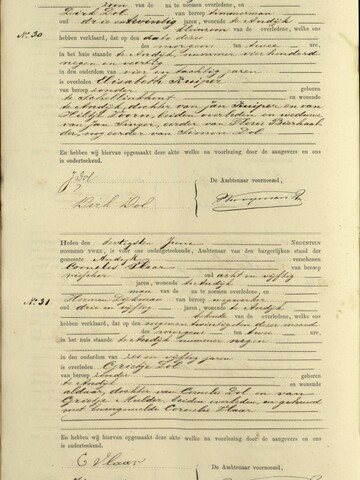 zoon van de na te noemen overledene, en
Dirk Dol van beroep timmerman
oud drie en twintig jaren, wonende te Andijk
van de overledene, welke ons
No. 30
hebben verklaard, dat op den deser
des morgens ten twee ure,
in het huis staande te Andijk, nummer vierhonderd
negen en veertig
in den ouderdom van vier en tachtig jaren
is overleden Elisabeth Kuiper
van beroep zonder geboren
te Schellinkhout en wonende
te Andijk, dochter van Jan Kuiper en van
Hiltje Voorn, beiden overleden en weduwe
van Jan Singer, eerder van Pieter Bierhaak
der, nog eerder van Simon Dol
En hebben wij hiervan opgemaakt deze akte welke na voorlezing door de aangevers en ons
is onderteekend.
De Ambtenaar voornoemd,
J Dol
Dirk Dol
Heden den dertigsten Juni NEGENTIEN
HONDERD TWEE, is voor ons ondergeteekende, Ambtenaar van den burgerlijken stand der
gemeente Andijk verschenen
Cornelis Vlaar van beroep
visscher oud acht en vijftig
jaren, wonende te Andijk
man van de na te noemen overledene, en
No. 31
Herman Dijkman van beroep wegwerker
oud drie en vijftig jaren, wonende te Andijk
bekende van de overledene, welke ons
hebben verklaard, dat op den negenentwintigsten dezer maand
des ten twee ure,
in het huis staande te Andijk nummer negen
in den ouderdom van zes en vijftig jaren
is overleden Grietje Dol
van beroep zonder geboren
te Andijk en wonende
aldaar, dochter van Cornelis Dol en van
Grietje Mulder, beiden overleden, en gehuwd
met bovengemelde Cornelis Vlaar
En hebben wij hiervan opgemaakt deze akte welke na voorlezing door de aangevers en ons
is onderteekend.
De Ambtenaar voornoemd,
C Vlaar